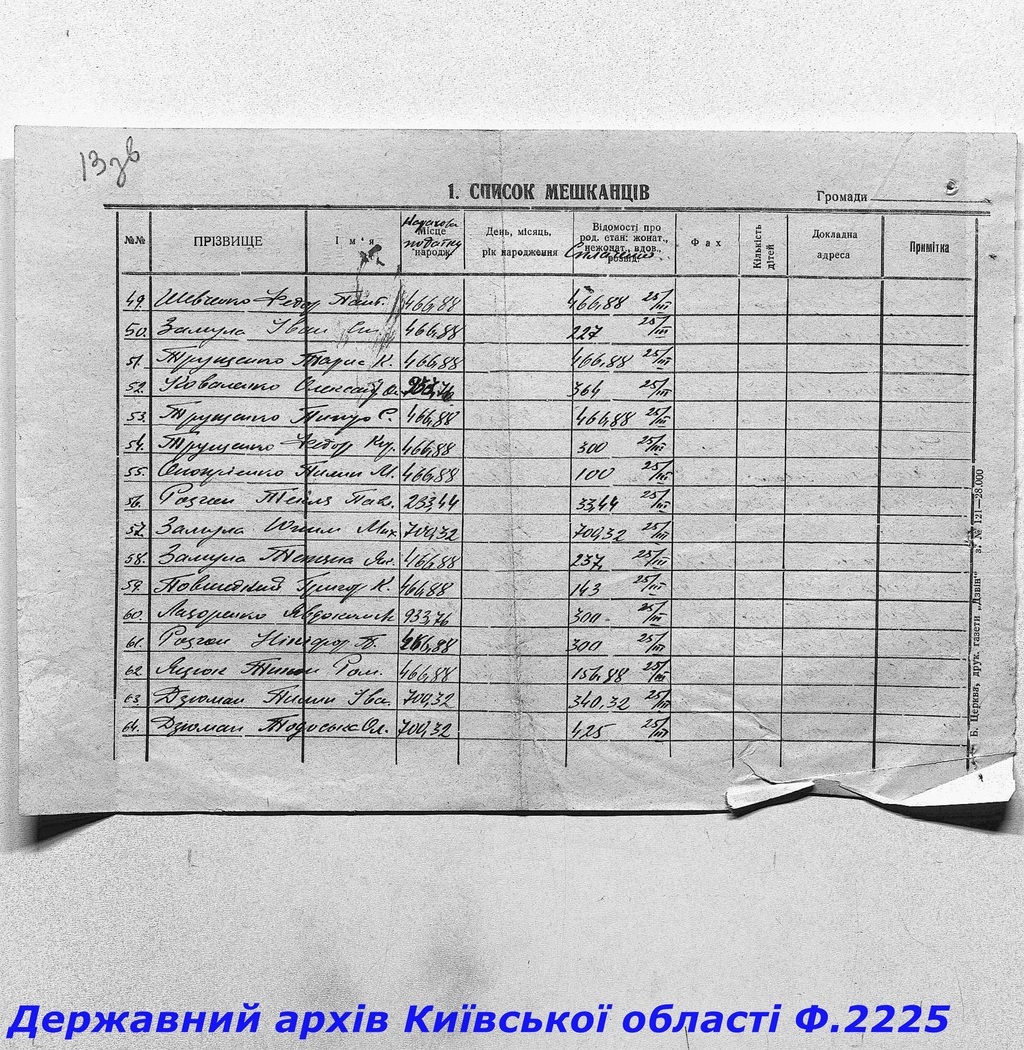 13зв
1. СПИСОК МЕШКАНЦІВ
Громади
№№ ПРІЗВИЩЕ Ім'я Місце народж. День, місяць, рік народження Відомості про род. стан: жонат., нежонат., вдов., розвід. Фах Кількість дітей Докладна адреса Примітка
податку
49. Шевченко Федор Пант. 466,88 466,88 25/III
50. Замула Іван 466,88 227 25/III
51. Трущенко Тарас К. 466,88 466,88 25/III
52. Коваленко Олександ 364 25/III
53. Трущенко С. 466,88 466,88 25/III
54. Трущенко Федор 466,88 300 25/III
55. Пилип М. 466,88 100 25/III
56. Розгон Пав. 233,44 33,44 25/III
57. Замула Юхим Мих. 700,32 700,32 25/III
58. Замула 466,88 237 25/III
59. Григор К. 466,88 143 25/III
60. Лазоренко Явдоким 933,76 300 25/III
61. Розгон Нікіфор П. 300 25/III
62. Яцюк Ром. 466,88 156,88 25/III
63. Дзюман Пилип Іва. 700,32 340,32 25/III
64. Дзюман Тодоська Ол. 700,32 425 25/III
Б. Церква, друк. газети „Дзвін" з. № 121—28.000
Державний архів Київської області Ф.2225